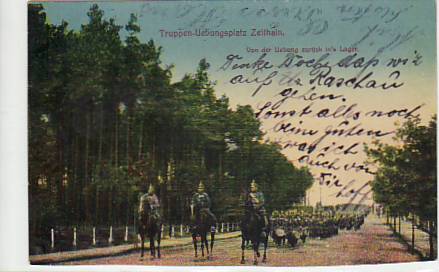 Truppen-Uebungsplatz Zeithain.
Von der Uebung zurück in's Lager.
Denke Woche das wir
auf d. Raschau
gehen.
Sonst alles noch
beim guten
was ich
auch von
Dir
hoffe